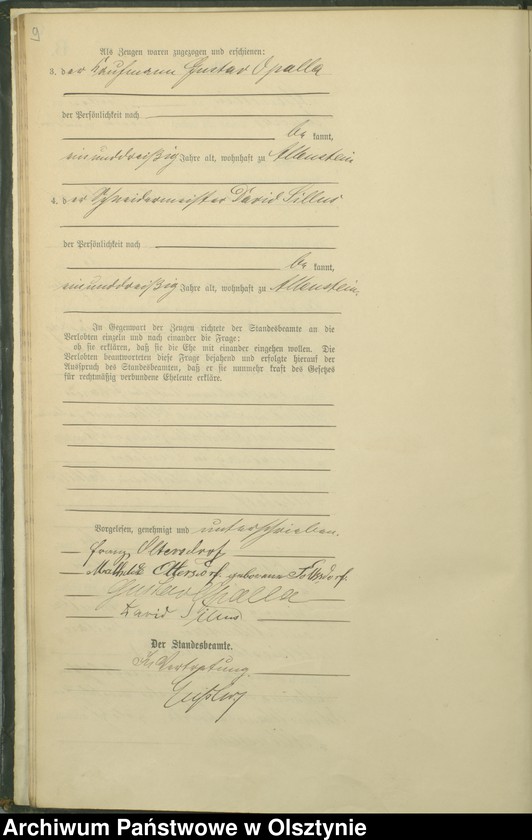 9
Als Zeugen waren zugezogen und erschienen:
3. der Kaufmann Gustav Opalla
der Persönlichkeit nach
be kannt,
einunddreißig Jahre alt, wohnhaft zu Allenstein
4. der Schneidermeister David Tillus
der Persönlichkeit nach
be kannt,
einunddreißig Jahre alt, wohnhaft zu Allenstein.
In Gegenwart der Zeugen richtete der Standesbeamte an die
Verlobten einzeln und nach einander die Frage:
ob sie erklären, daß sie die Ehe mit einander eingehen wollen. Die
Verlobten beantworteten diese Frage bejahend und erfolgte hierauf der
Ausspruch des Standesbeamten, daß er sie nunmehr kraft des Gesetzes
für rechtmäßig verbundene Eheleute erkläre.
Vorgelesen, genehmigt und unterschrieben.
Franz Ottersdorf
Mathilde Ottersdorf geborene
Gustav Opalla
David Tillus
Der Standesbeamte.
In Vertretung.
Archiwum Państwowe w Olsztynie